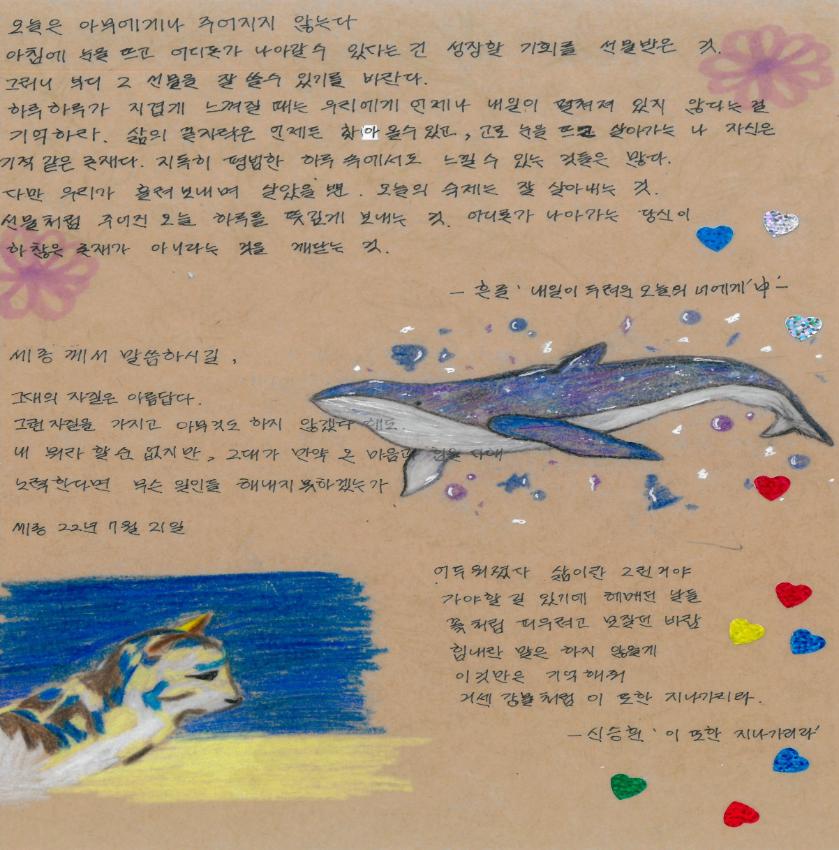 오늘은 아무에게나 주어지지 않는다
아침에 눈을 뜨고 어디론가 나아갈 수 있다는 건 성장할 기회를 선물받은 것.
그러니 부디 그 선물을 잘 쓸 수 있기를 바란다.
하루하루가 지겹게 느껴질 때는 우리에게 언제나 내일이 펼쳐져 있지 않다는 걸
기억하라. 삶의 끝자락은 언제든 찾아 올 수 있고, 고로 눈을 뜨고 살아가는 나 자신은
기적 같은 존재다. 지독히 평범한 하루 속에서도 느낄 수 있는 것들은 많다.
다만 우리가 흘려보내며 살았을 뿐. 오늘의 숙제는 잘 살아내는 것.
선물처럼 주어진 오늘 하루를 뜻깊게 보내는 것. 어디론가 나아가는 당신이
하찮은 존재가 아니라는 것을 깨닫는 것.
- 흔글 '내일이 두려운 오늘의 너에게' 中 -
세종께서 말씀하시길,
그대의 자질은 아름답다.
그런 자질을 가지고 아무것도 하지 않겠다 해도
내 뭐라 할 순 없지만, 그대가 만약 온 마음과 힘을 다해
노력한다면 무슨 일인들 해내지 못하겠는가
세종 22년 7월 21일
어두워졌다 삶이란 그런거야
가야할 길 있기에 헤매던 날들
꽃처럼 피우려고 모질던 바람
힘내란 말은 하지 않을게
이것만은 기억해줘
거센 강물처럼 이 또한 지나가리라.
- 신승훈 '이 또한 지나가리라'